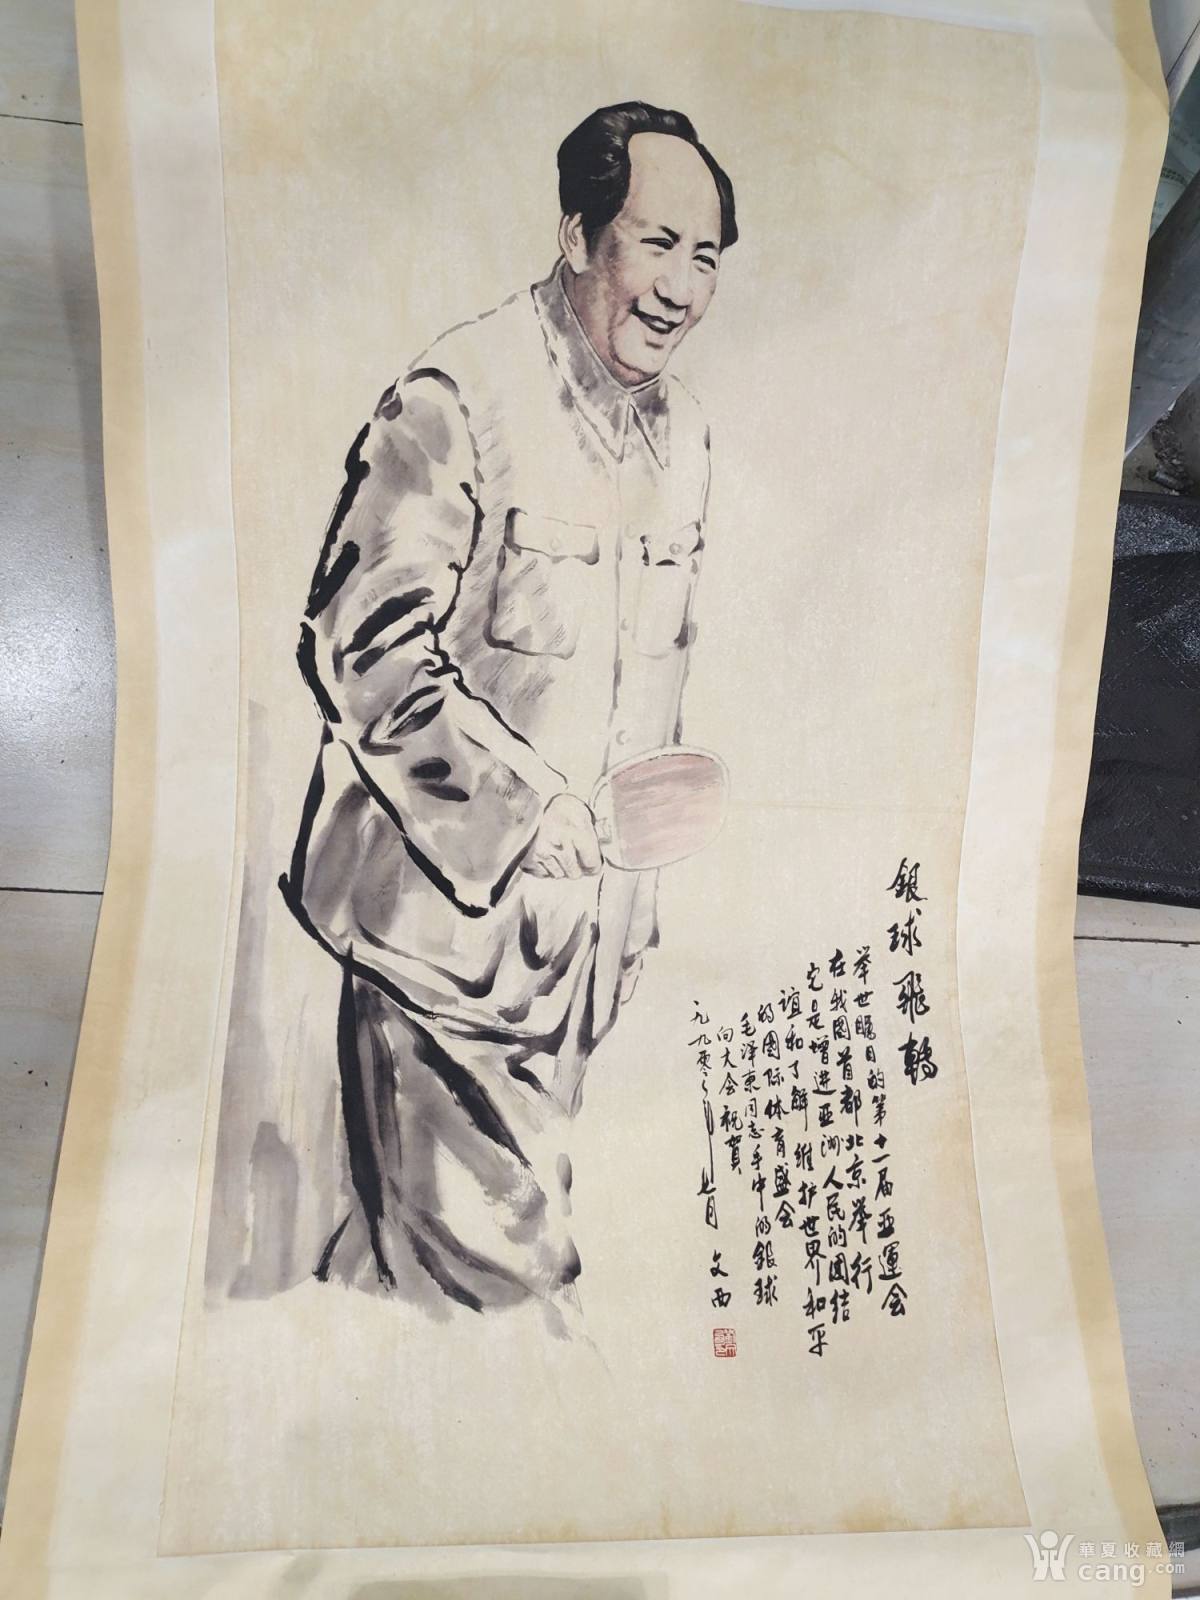 銀球飛轉
举世瞩目的第十一届亚運会
在我國首都北京举行
它是增进亚洲人民的团结
谊和了解维护世界和平
的國际体育盛会
毛泽東同志手中的銀球
向大会祝賀
一九九零年七月 文西
華夏收藏網
cang.com